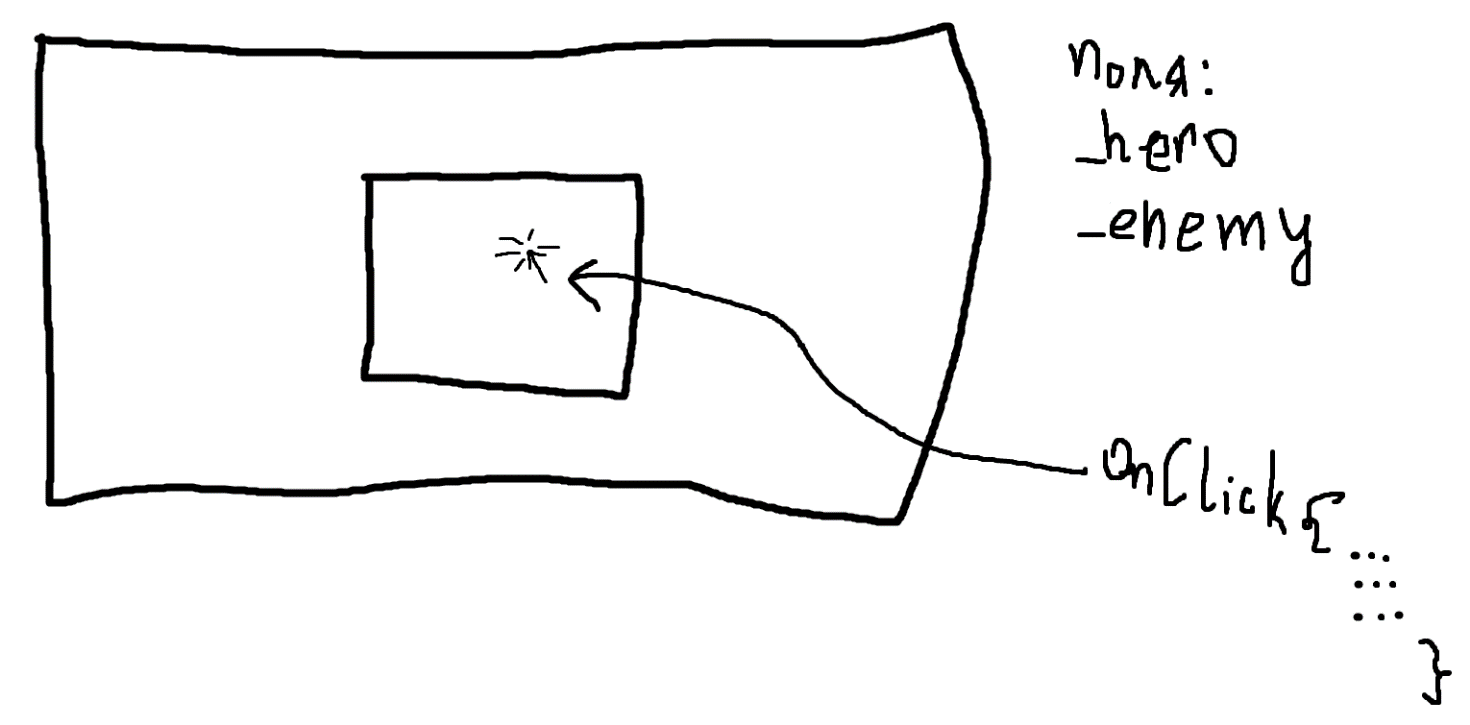 поля:
_hero
_enemy
OnClick {...
...
...
}